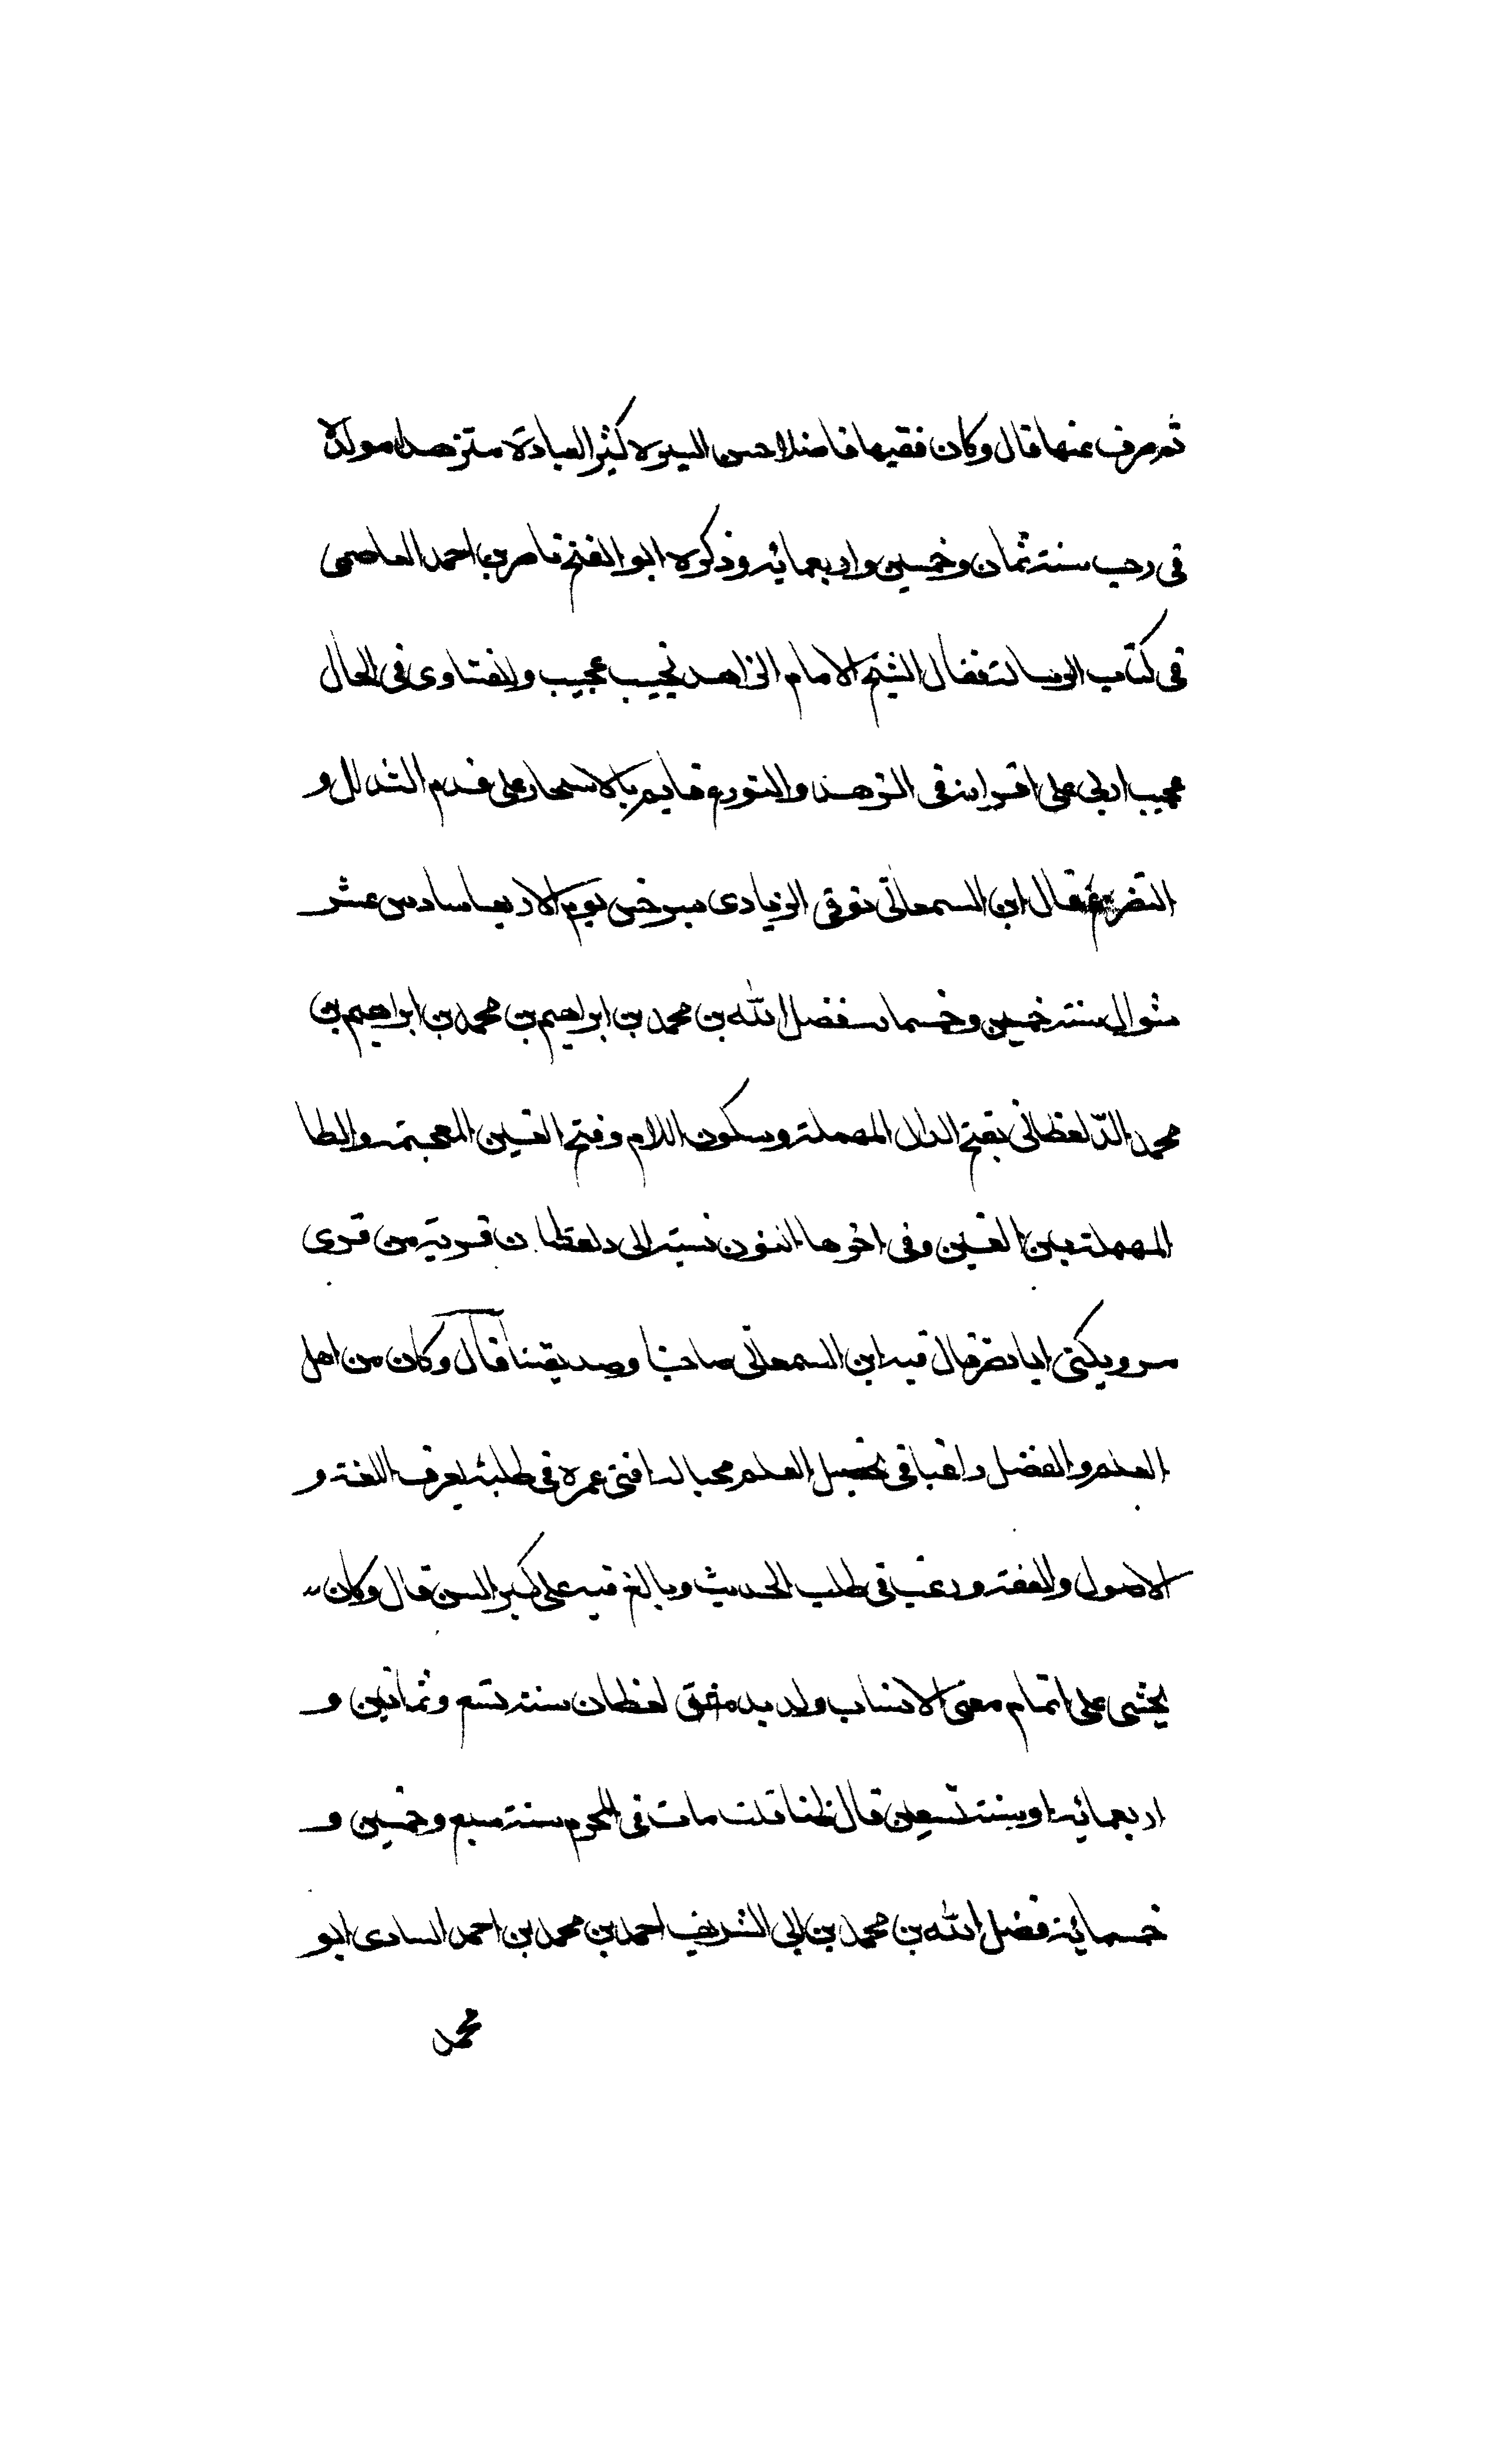 ثم صرف عنها قال وكان فقيها فاضلا حسن السيرة كثير العبادة متزهدا مولده
في رجب سنة ثمان وخمسين واربعمائه وذكره ابو الفتح ناصر بن احمد العاصمي
في كتاب الرسالة فقال الشيخ الامام الزاهد نجيب عجيب والفتاوى في الحال
مجيب اربى على اقرانه في التزهد والتورع قايم بالاسحار على قدم التذلل و
التضرع قال ابن السمعاني توفي الزيادى بسرخس يوم الاربعا سادس عشر
شوال سنة خمسين وخمسمايه فضل الله بن محمد بن ابراهيم بن محمد بن ابراهيم بن
محمد الدلغطاني بفتح الدال المهملة وسكون اللام وفتح الغين المعجمة والطا
المهملة بين الغين وفي اخرها النون نسبة الى دلغطان قرية من قرى
مرو يكنى ابا نضر قال فيه ابن السمعاني صاحبنا وصديقنا قال وكان من اهل
العلم والفضل راغبا في تحصيل العلم محبا له افنى عمره في طلبه يعرف اللغة و
الاصول والفقه ورغب في طلب الحديث وبالغ فيه على كبر السن قال وكان
يحثني على اتمام معنى الانساب ولد بدلغطان سنة تسع وثمانين و
اربعمائه او سنة تسعين قال ظنا قلت مات في المحرم سنة سبع وخمسين و
خمسمائة فضل الله بن محمد بن ابي الشريف احمد بن محمد بن احمد السادى ابو
محمد